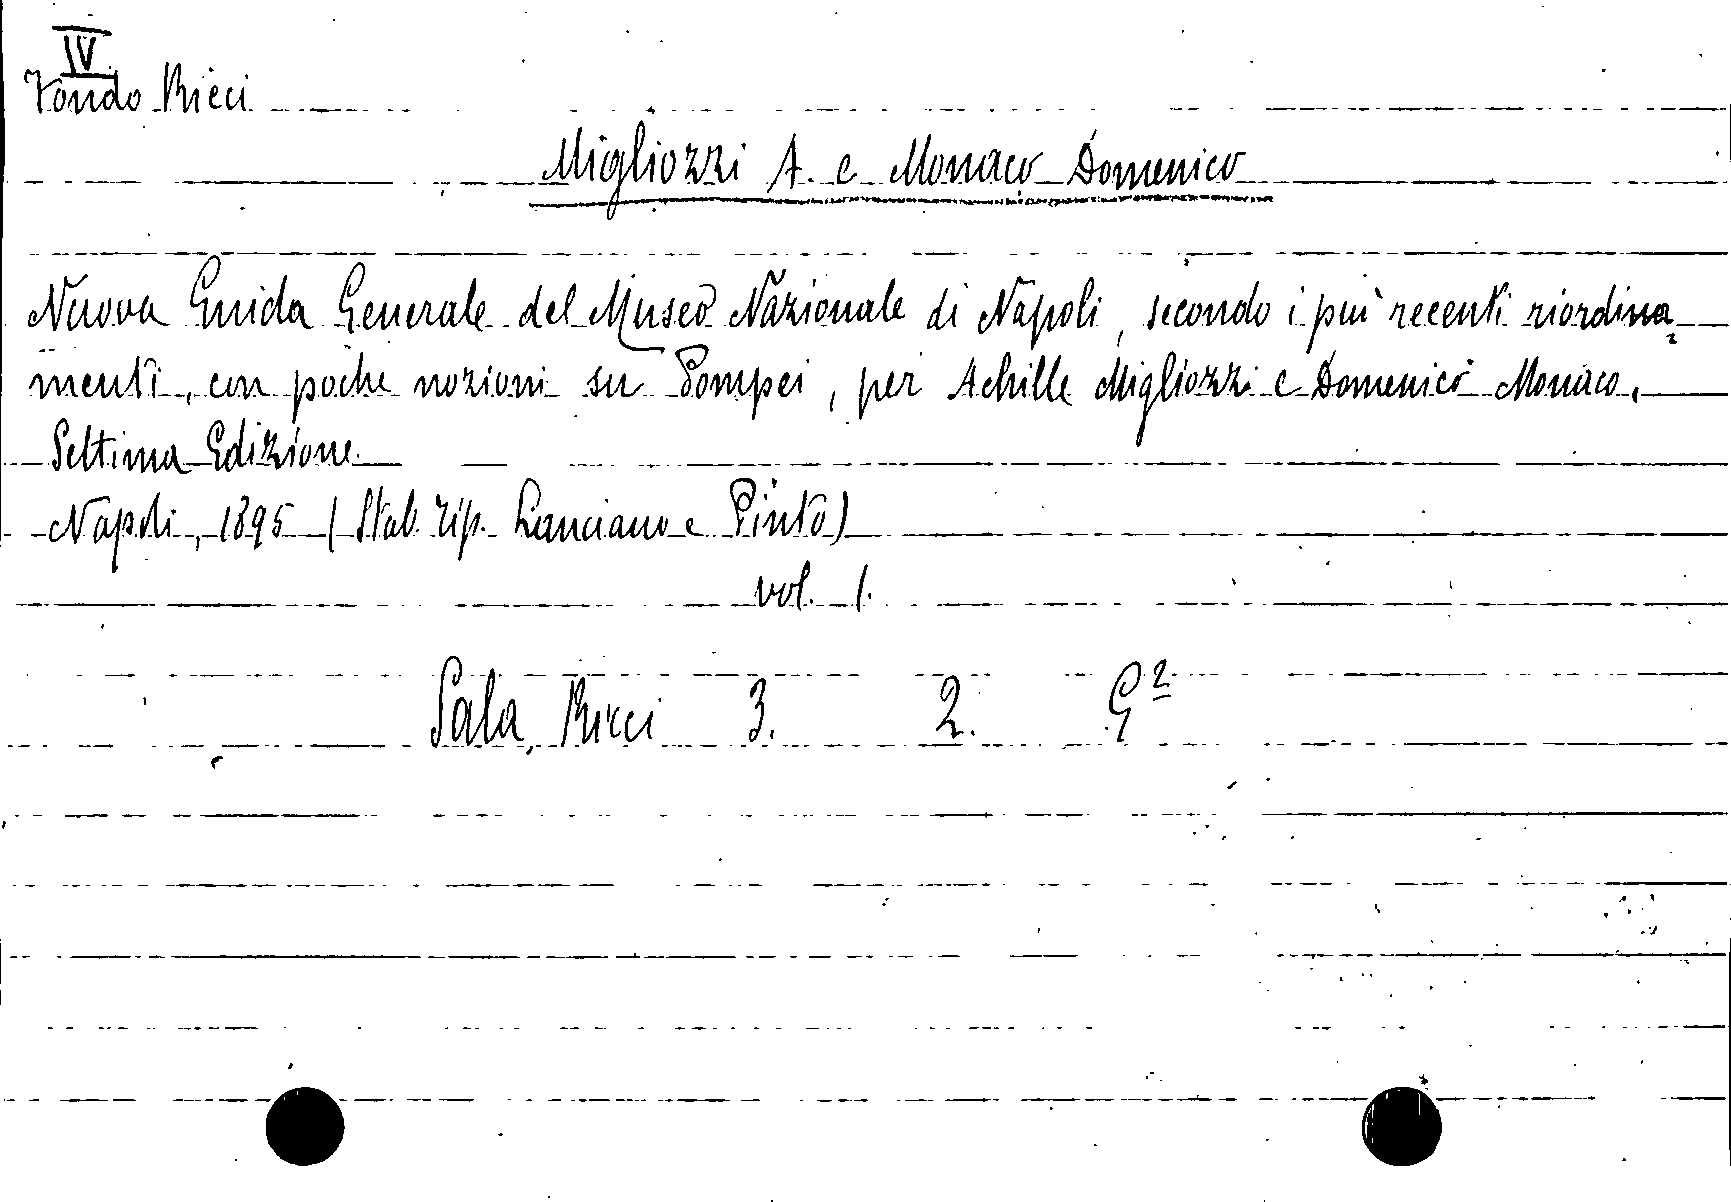 IV
Fondo Ricci
Migliozzi A. e Monaco Domenico
Nuova Guida Generale del Museo Nazionale di Napoli, secondo i più recenti riordina-
menti, con poche nozioni su Pompei, per Achille Migliozzi e Domenico Monaco.
Settima Edizione.
Napoli, 1895 (Stab. tip. Lanciano e Pinto)
vol. 1.
Sala Ricci 3. 2. G²